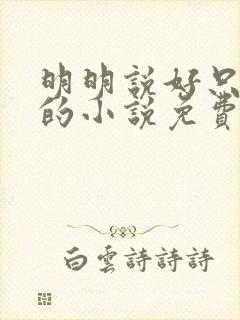 明明說好只
的小說免費
白雲詩詩詩